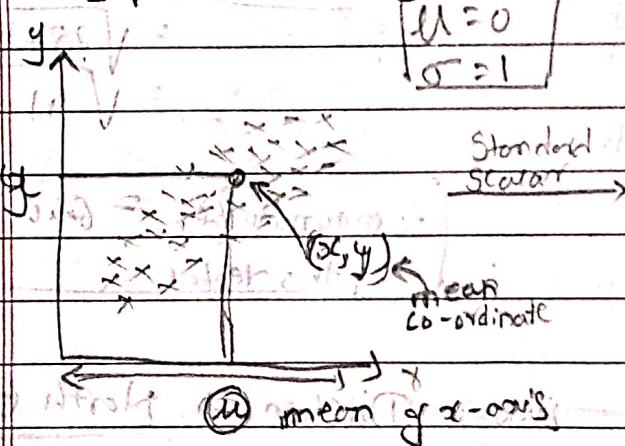 μ = 0
σ = 1
y
y
Standard
Scalar
(x, y)
mean
co-ordinate
x
μ mean of x-axis